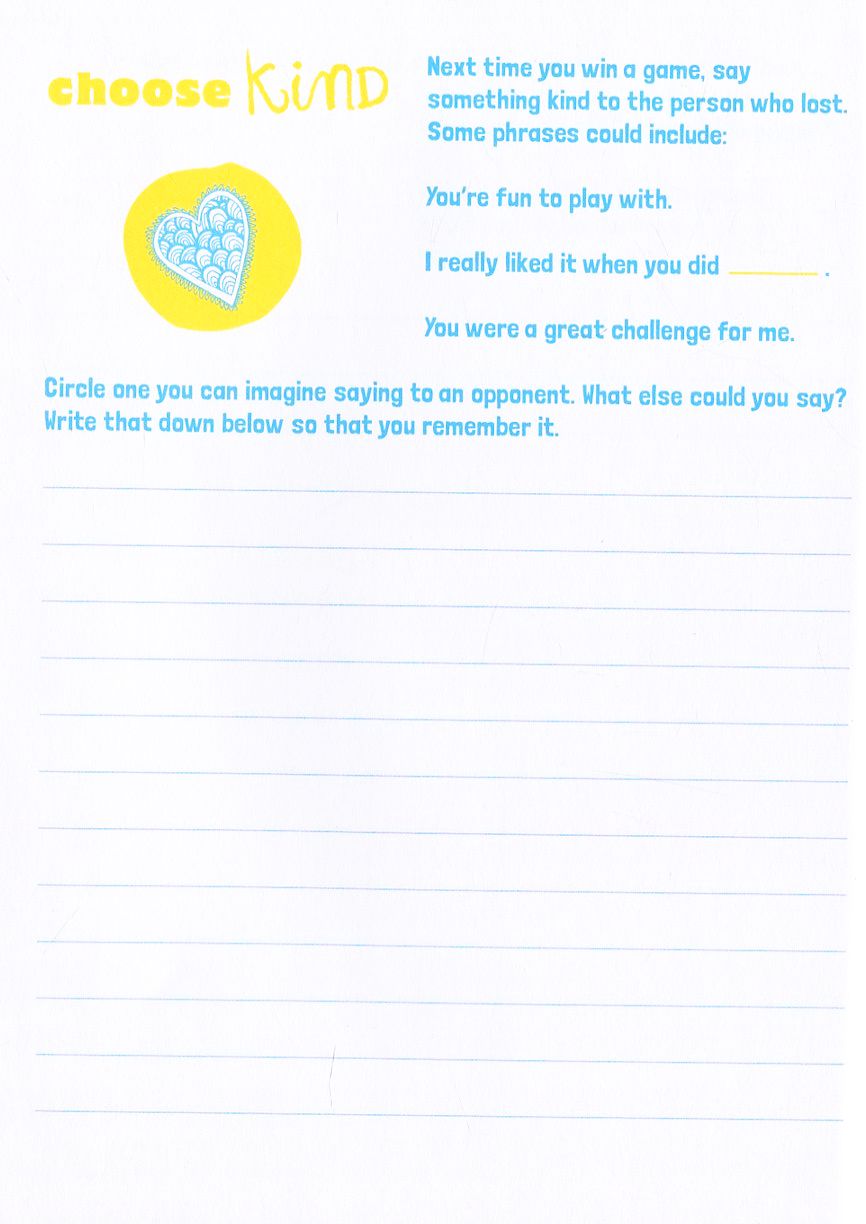 choose KiND
Next time you win a game, say
something kind to the person who lost.
Some phrases could include:
You're fun to play with.
I really liked it when you did ________ .
You were a great challenge for me.
Circle one you can imagine saying to an opponent. What else could you say?
Write that down below so that you remember it.